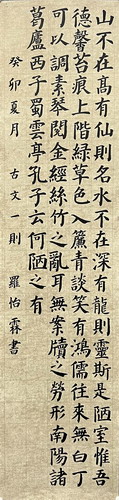 山不在高有仙則名水不在深有龍則靈斯是陋室惟吾
德馨苔痕上階綠草色入簾青談笑有鴻儒往來無白丁
可以調素琴閱金經絲竹之亂耳無案牘之勞形南陽諸
葛廬西子蜀雲亭孔子云何陋之有
癸卯夏月 古文一則 羅怡霖書